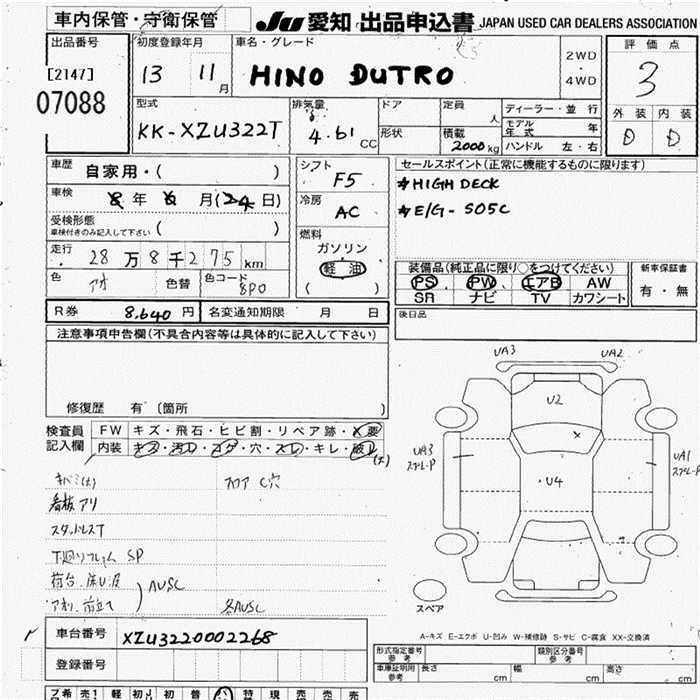 車内保管・守衛保管
JU 愛知 出品申込書 JAPAN USED CAR DEALERS ASSOCIATION
出品番号
[2147]
07088
初度登録年月
13 11月
車名・グレード
HINO DUTRO
2WD
・
4WD
評価点
3
型式
KK-XZU322T
排気量
4.61 CC
ドア
形状
定員
人
積載
2000kg
ディーラー・並 行
モデル年式 年
ハンドル 左・右
外装 内装
D D
車歴
自家用・( )
車検
年 月(24日)
受検形態
車検付きのみ記入して下さい ( )
走行
28万8千275km
色
アオ
色替
色コード
8P0
シフト
F5
冷房
AC
燃料
ガソリン
軽油
( )
セールスポイント(正常に機能するものに限ります)
*HIGH DECK
*E/G- S05C
装備品(純正品に限り○をつけてください)
PS PW エアB AW
SR ナビ TV カワシート
新車保証書
有・無
R券 8,640円 名変通知期限 月 日
後日品
注意事項申告欄(不具合内容等は具体的に記入して下さい)
修復歴 有 (箇所 )
検査員記入欄
FW キズ・飛石・ヒビ割・リペア跡・X要
内装 キズ・汚レ・コゲ・穴・スレ・キレ・破レ
(大)
フロア C穴
看板アリ
スタッドレスT
SP
AUSC
各AUSC
UA3 UA2
U2
UA3
UA1
U4
スペア
A-キズ E-エクボ U-凹み W-補修跡 S-サビ C-腐食 XX-交換済
車台番号 XZU3220002268
登録番号
形式指定番号
参考
類別区分番号
参考
車庫証明用
参考
長さ cm 幅 cm 高さ cm